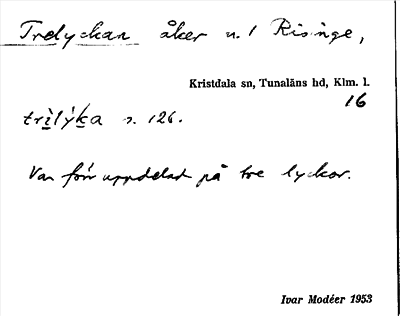 Trelyckan åker n. 1 Risinge,
Kristdala sn, Tunaläns hd, Klm. l.
16
trìlýka s. 126.
Var förr uppdelad på tre lyckor.
Ivar Modéer 1953